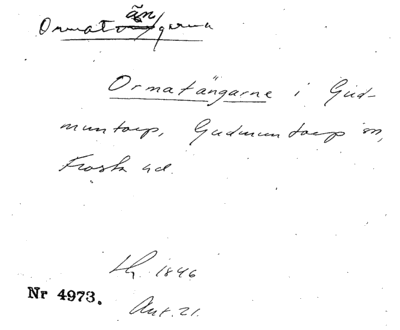 Ormatängarna
Ormatängarne i Gud-
muntorp, Gudmuntorp sn,
Frosta hd.
Lh. 1846
Nr 4973.
Ant. 21.